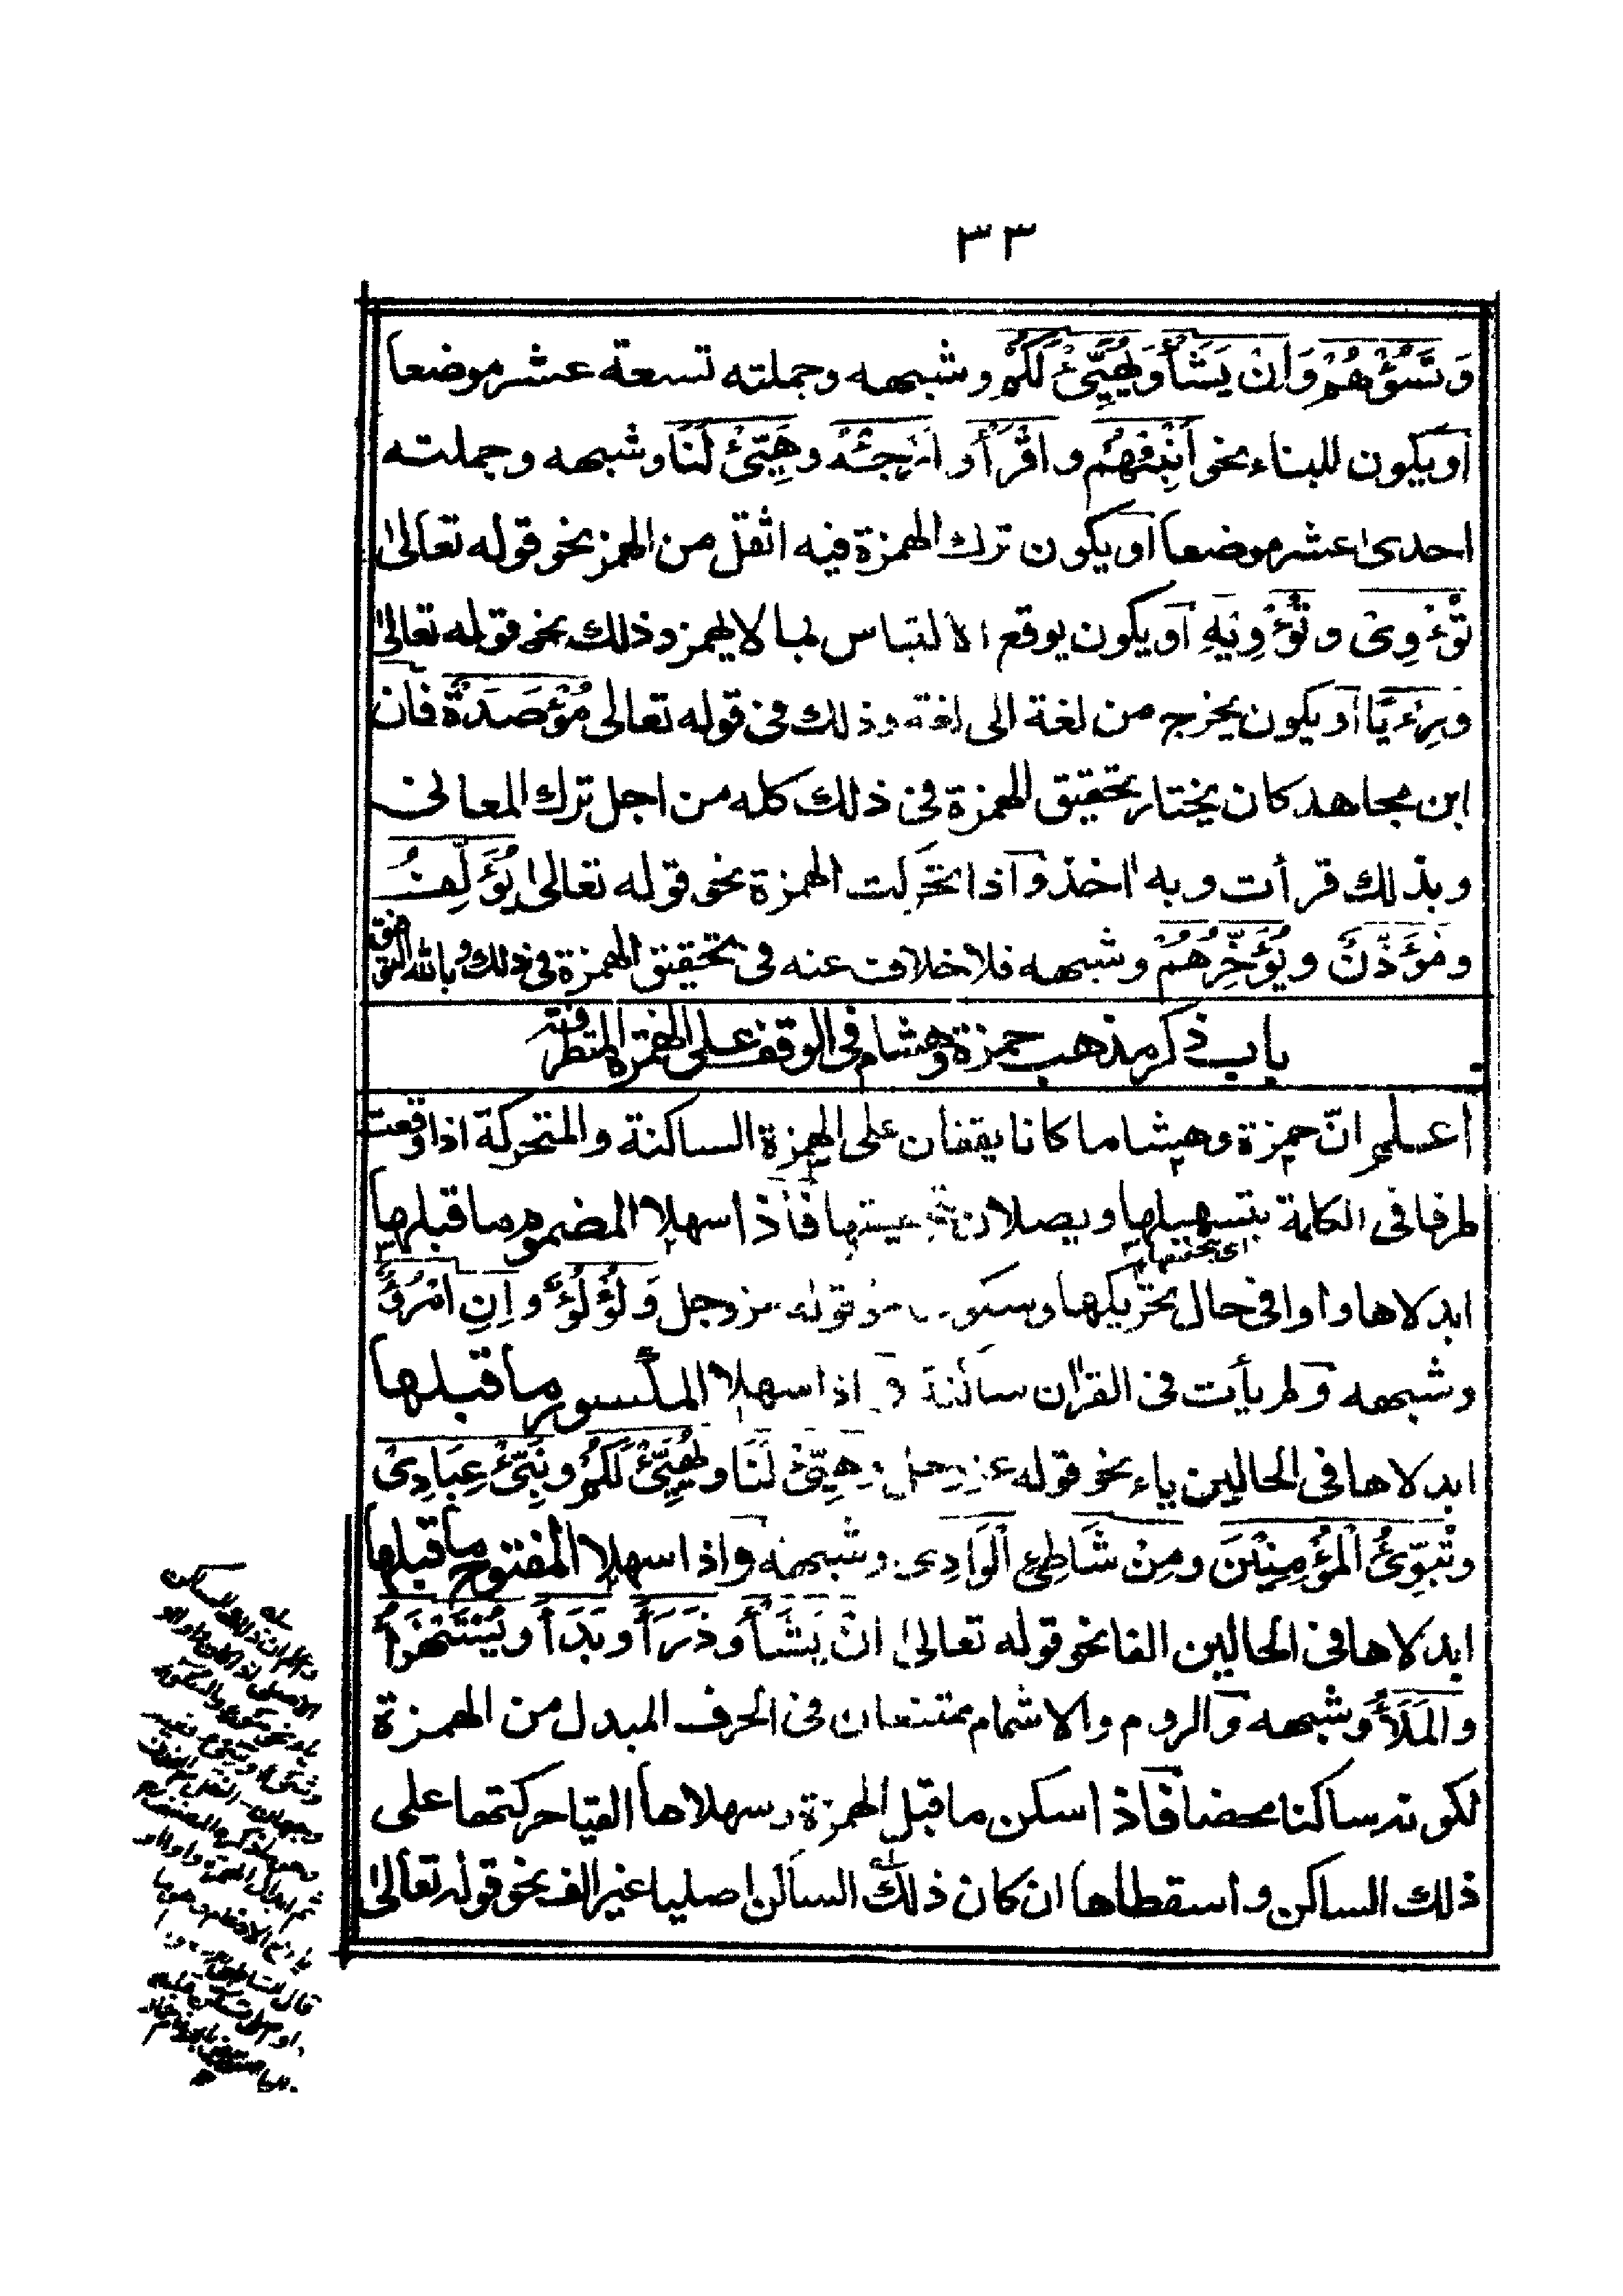 ٣٣
وَتَسُؤْهُمْ وَاِنْ يَشَأْ وَيُهَيِّئْ لَكُمْ وشبهه وجملته تسعة عشر موضعا
او يكون للبناء نحو اَنْبِئْهُمْ و اقْرَأْ و اَرْجِئْهُ و هَيِّئْ لَنَا وشبهه وجملته
احدى عشر موضعا او يكون ترك الهمزة فيه اثقل من الهمز نحو قوله تعالىٰ
تُؤْوِىْ و تُؤْوِيْهِ او يكون يوقع الالتباس بما لا يهمز وذلك نحو قوله تعالىٰ
ورِءْيًا او يكون يخرج من لغة الى لغة وذلك فى قوله تعالى مُؤْصَدَةٌ فان
ابن مجاهد كان يختار تحقيق الهمزة فى ذلك كله من اجل ترك المعانى
وبذلك قرأت وبه اخذ واذا تحركت الهمزة نحو قوله تعالىٰ يُؤَلِّفُ
ومُؤَذِّنٌ و يُؤَخِّرُهُمْ وشبهه فلا خلاف عنه فى تحقيق الهمزة فى ذلك وبالله التوفيق
باب ذكر مذهب حمزة وهشام فى الوقف على الهمزة المتطرفة
اعلم انّ حمزة وهشاما كانا يقفان على الهمزة الساكنة والمتحركة اذا وقعت
طرفا فى الكلمة بتسهيلها ويصلان بتحقيقها فاذا سهلا المضموم ما قبلها
اى بتخفيفها
ابدلاها واوا فى حال تحريكها وسكونها نحو قوله عز وجل وَلُؤْلُؤٌ و اِنِ امْرُؤٌ
وشبهه ولم يأت فى القراٰن ساكنة واذا سهلا المكسور ما قبلها
ابدلاها فى الحالين ياء نحو قوله عز وجل وهَيِّئْ لَنَا و يُهَيِّئْ لَكُمْ و نَبِّئْ عِبَادِىْ
وتُبَوِّئُ الْمُؤْمِنِيْنَ و مِنْ شَاطِئِ الْوَادِى وشبهه واذا سهلا المفتوح ما قبلها
ابدلاها فى الحالين الفا نحو قوله تعالىٰ اِنْ يَشَأْ و ذَرَأَ و بَدَأَ و يُسْتَهْزَأُ
والْمَلَأُ وشبهه والروم والاشمام ممتنعان فى الحرف المبدل من الهمزة
لكونه ساكنا محضا فاذا سكن ما قبل الهمزة وسهلاها القيا حركتها على
ذلك الساكن واسقطاها ان كان ذلك الساكن اصليا غير الف نحو قوله تعالىٰ